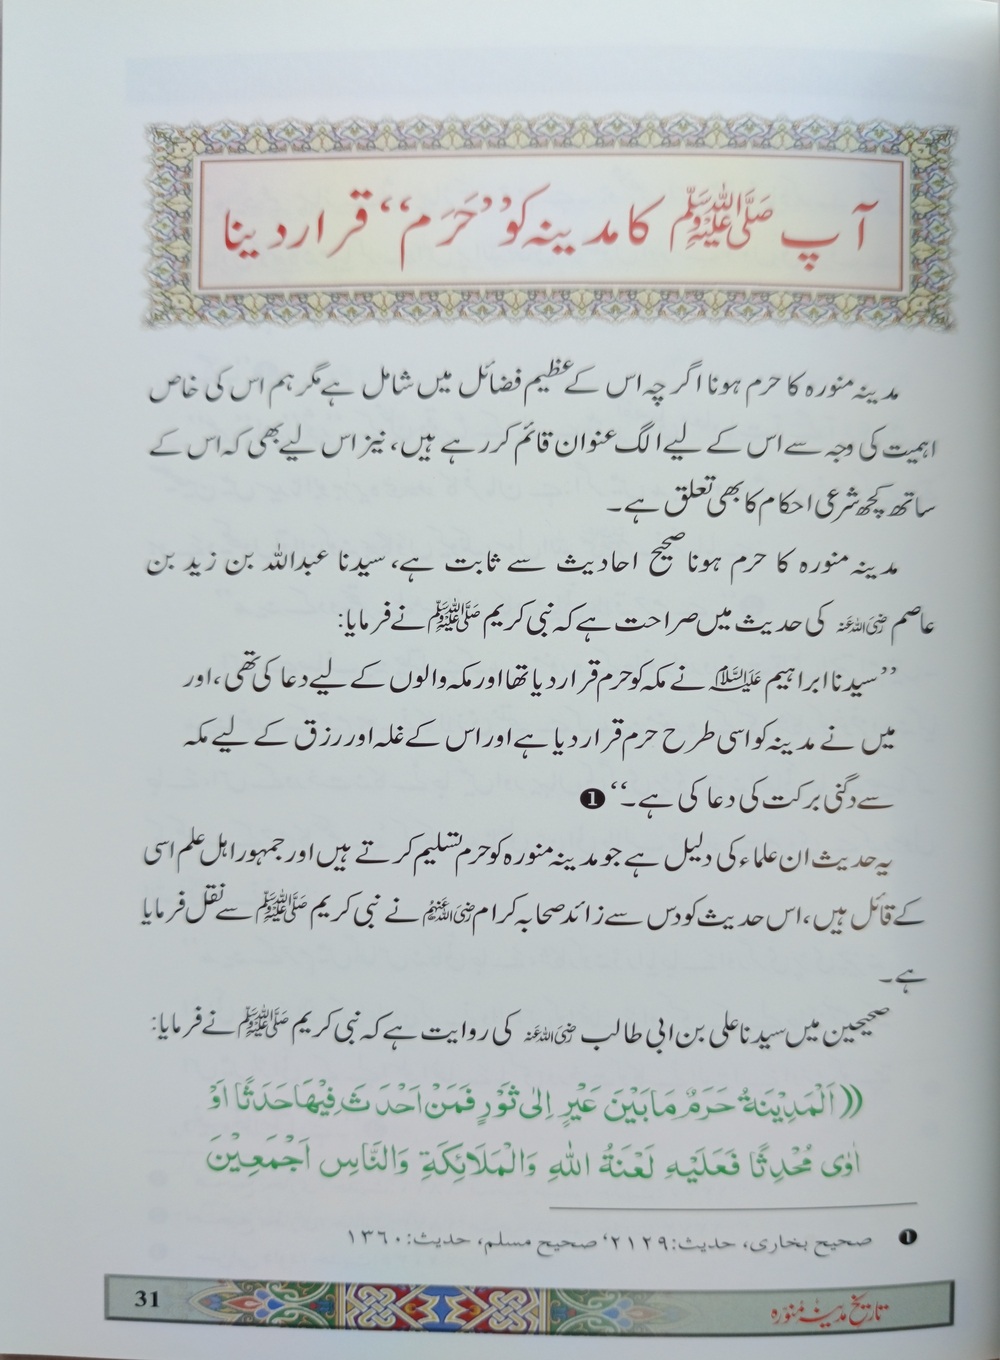 آپ ﷺ کا مدینہ کو ’’حَرَم‘‘ قرار دینا
مدینہ منورہ کا حرم ہونا اگرچہ اس کے عظیم فضائل میں شامل ہے مگر ہم اس کی خاص
اہمیت کی وجہ سے اس کے لیے الگ عنوان قائم کر رہے ہیں، نیز اس لیے بھی کہ اس کے
ساتھ کچھ شرعی احکام کا بھی تعلق ہے۔
مدینہ منورہ کا حرم ہونا صحیح احادیث سے ثابت ہے، سیدنا عبداللہ بن زید بن
عاصم رضی اللہ عنہ کی حدیث میں صراحت ہے کہ نبی کریم ﷺ نے فرمایا:
’’سیدنا ابراہیم علیہ السلام نے مکہ کو حرم قرار دیا تھا اور مکہ والوں کے لیے دعا کی تھی، اور
میں نے مدینہ کو اسی طرح حرم قرار دیا ہے اور اس کے غلہ اور رزق کے لیے مکہ
سے دگنی برکت کی دعا کی ہے۔‘‘ ❶
یہ حدیث ان علماء کی دلیل ہے جو مدینہ منورہ کو حرم تسلیم کرتے ہیں اور جمہور اہل علم اسی
کے قائل ہیں، اس حدیث کو دس سے زائد صحابہ کرام رضی اللہ عنہم نے نبی کریم ﷺ سے نقل فرمایا
ہے۔
صحیحین میں سیدنا علی بن ابی طالب رضی اللہ عنہ کی روایت ہے کہ نبی کریم ﷺ نے فرمایا:
((اَلْمَدِيْنَةُ حَرَمٌ مَا بَيْنَ عَيْرٍ اِلٰى ثَوْرٍ فَمَنْ اَحْدَثَ فِيْهَا حَدَثًا اَوْ
اٰوٰى مُحْدِثًا فَعَلَيْهِ لَعْنَةُ اللّٰهِ وَالْمَلَائِكَةِ وَالنَّاسِ اَجْمَعِيْنَ
❶ صحیح بخاری، حدیث:۲۱۲۹‘ صحیح مسلم، حدیث:۱۳۶۰
تاریخ مدینہ منورہ
31